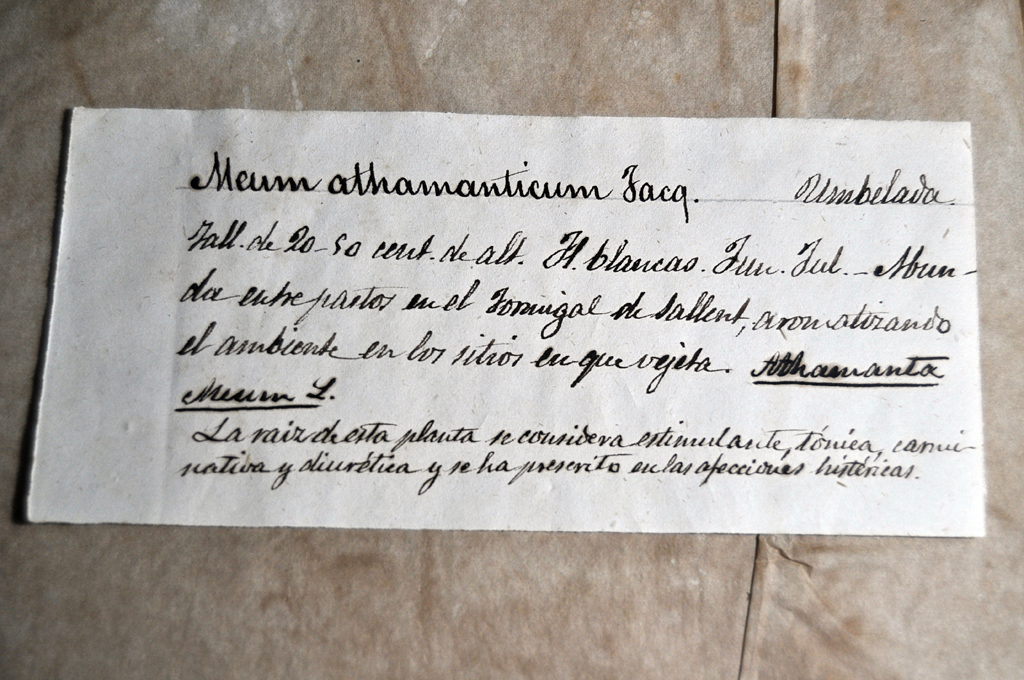 Meum athamanticum Jacq. Umbelada.
Tall. de 20-50 cent. de alt. Fl. blancas. Jun. Jul. - Abun-
da entre pastos en el Formigal de Sallent, aromatizando
el ambiente en los sitios en que vejeta. Athamanta
Meum L.
La raiz de esta planta se considera estimulante, tónica, carmi-
nativa y diurética y se ha prescrito en las afecciones histéricas.